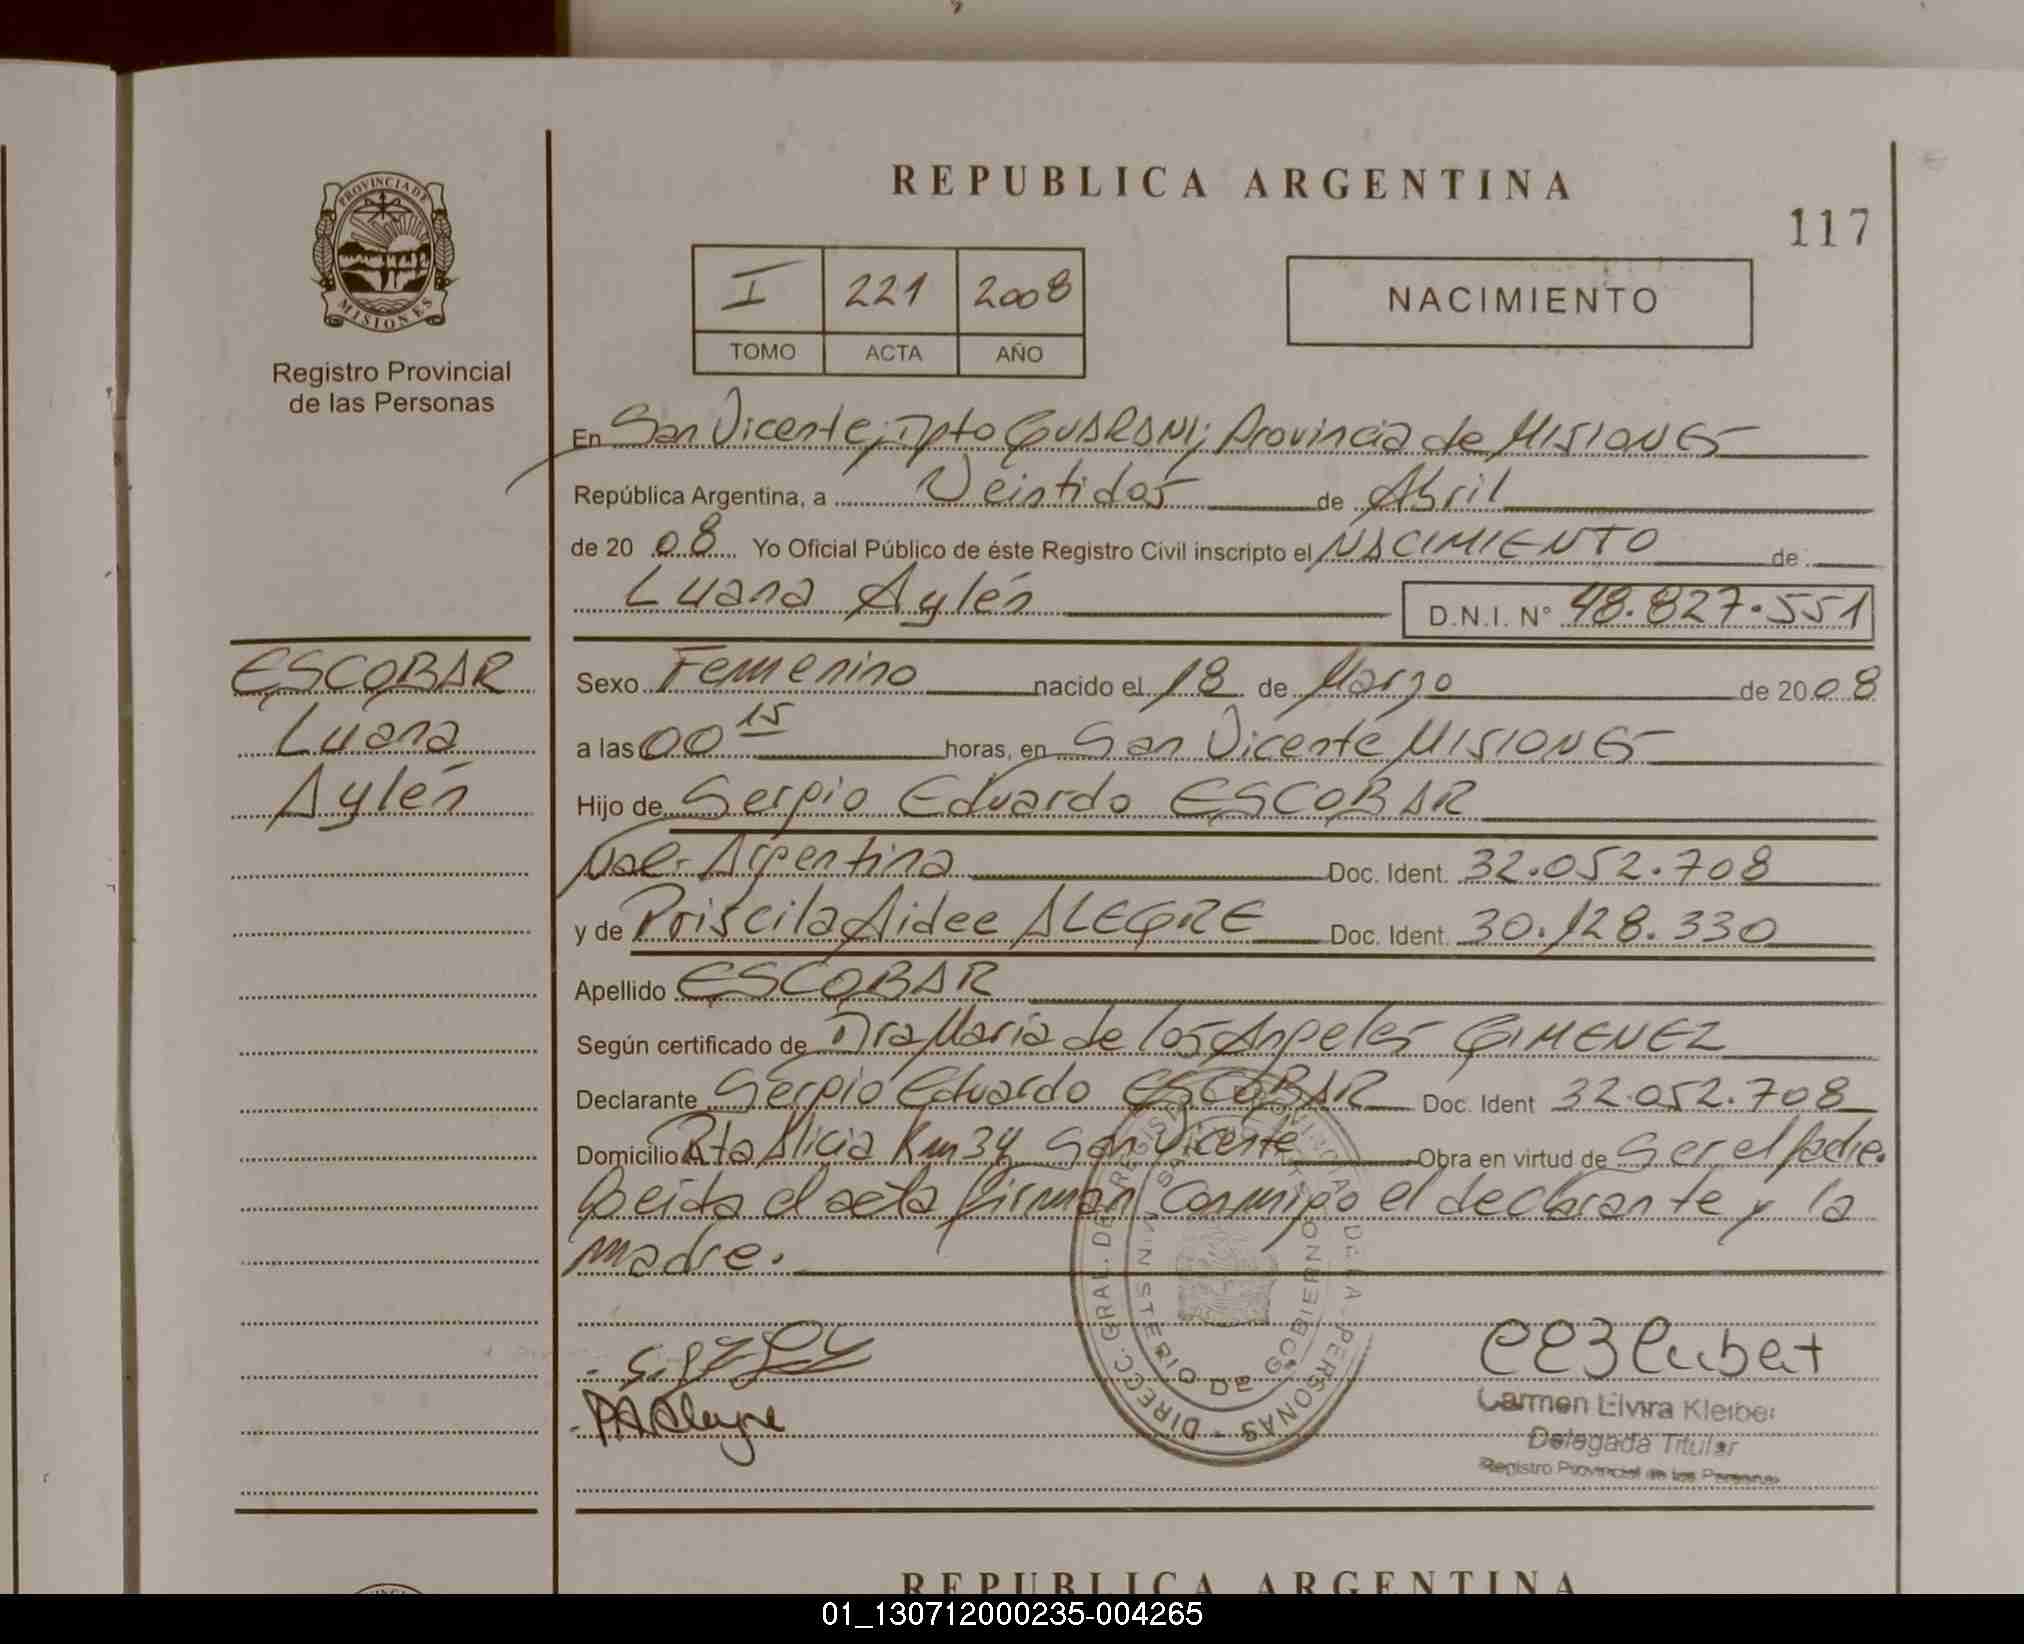 PROVINCIA DE
MISIONES
Registro Provincial
de las Personas
ESCOBAR
Luana
Aylén
REPUBLICA ARGENTINA
117
I 221 2008
TOMO ACTA AÑO
NACIMIENTO
En San Vicente, Dpto GUARANI; Provincia de MISIONES
República Argentina, a Veintidos de Abril
de 20 08 Yo Oficial Público de éste Registro Civil inscripto el NACIMIENTO de
Luana Aylén D.N.I. N° 48.827.551
Sexo Femenino nacido el 18 de Marzo de 20 08
a las 00 15 horas, en San Vicente MISIONES
Hijo de Sergio Eduardo ESCOBAR
Nac. Argentina Doc. Ident. 32.052.708
y de Priscila Aidee ALEGRE Doc. Ident. 30.128.330
Apellido ESCOBAR
Según certificado de Dra Maria de los Angeles GIMENEZ
Declarante Sergio Eduardo ESCOBAR Doc. Ident 32.052.708
Domicilio Rta Alicia Km 34 San Vicente Obra en virtud de Ser el padre.
Leida el acta firman conmigo el declarante y la
madre.
DIRECC. GRAL. DE REGISTRO PROVINCIAL DE LA PERSONAS
MINISTERIO DE GOBIERNO
PAAlegre
Carmen Elvira Kleiber
Delegada Titular
Registro Provincial de las Personas
REPUBLICA ARGENTINA
01_130712000235-004265